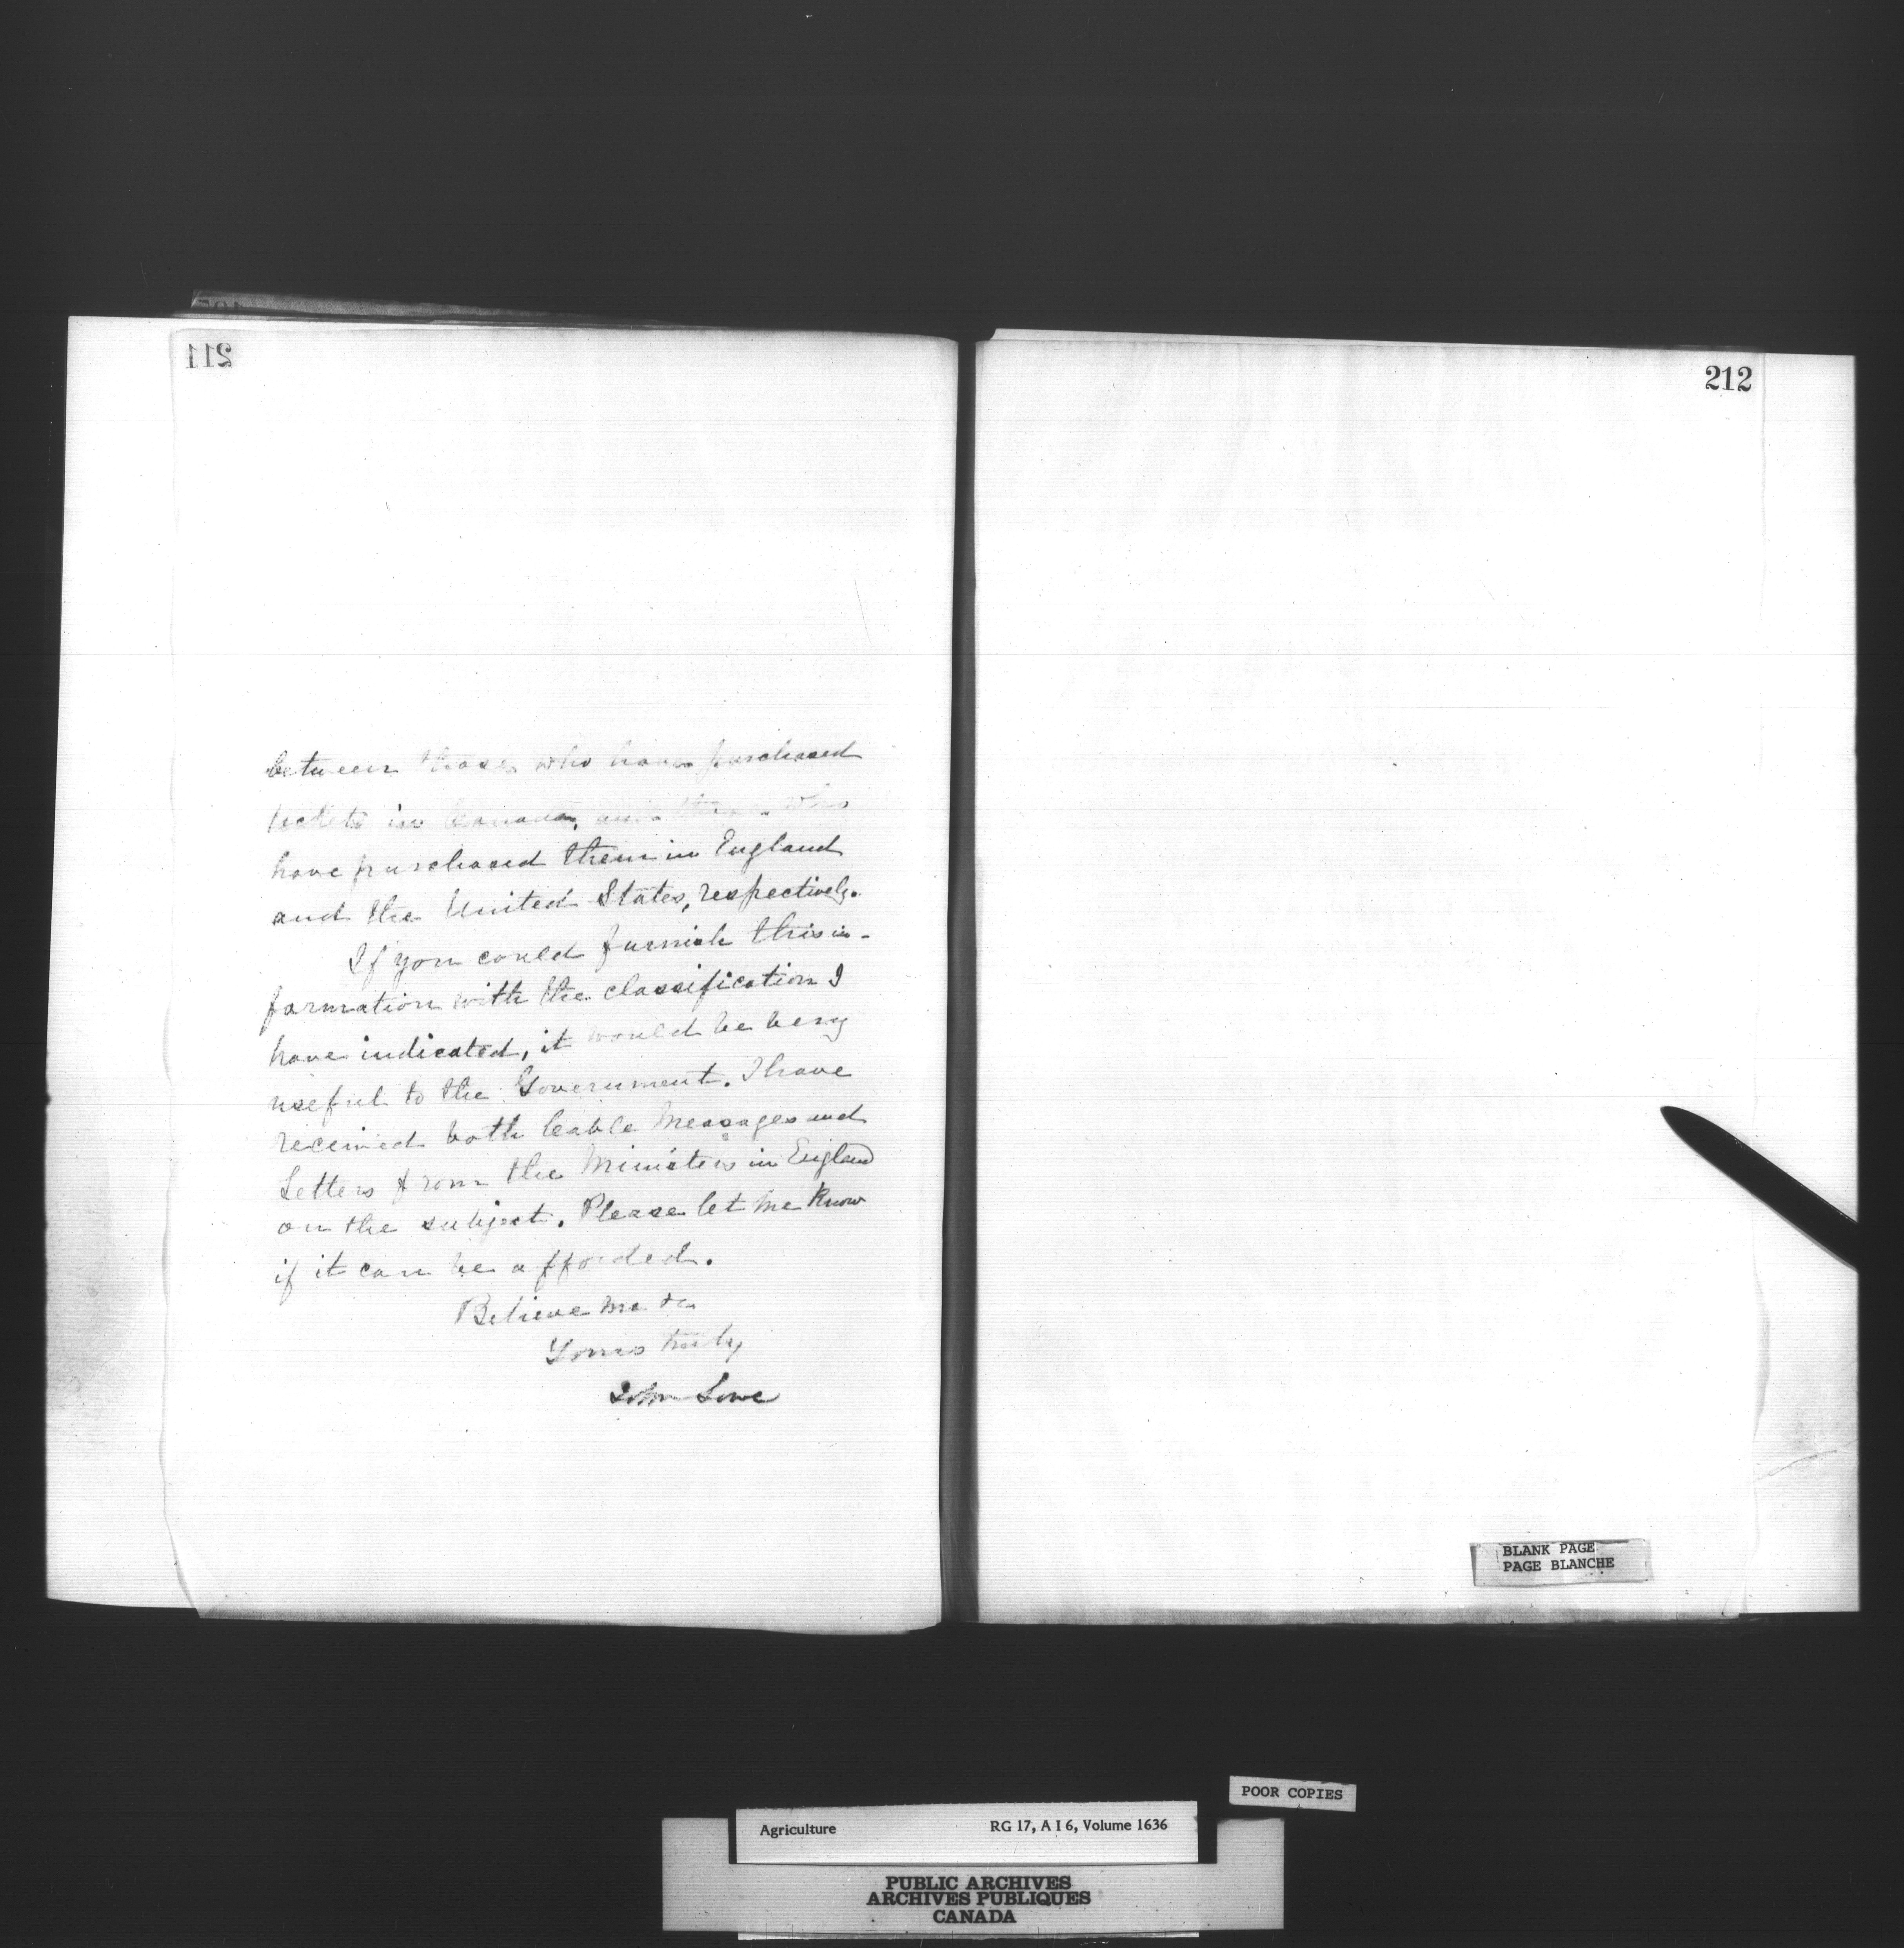 211
between those who have purchased
tickets in Canada, and those who
have purchased them in England
and the United States, respectively.
If you could furnish this in-
formation with the classification I
have indicated, it would be very
useful to the Government. I have
received both Cable Messages and
Letters from the Minister in England
on the subject. Please let me know
if it can be afforded.
Believe me &c
Yours truly
John Lowe
212
BLANK PAGE
PAGE BLANCHE
POOR COPIES
Agriculture RG 17, A I 6, Volume 1636
PUBLIC ARCHIVES
ARCHIVES PUBLIQUES
CANADA